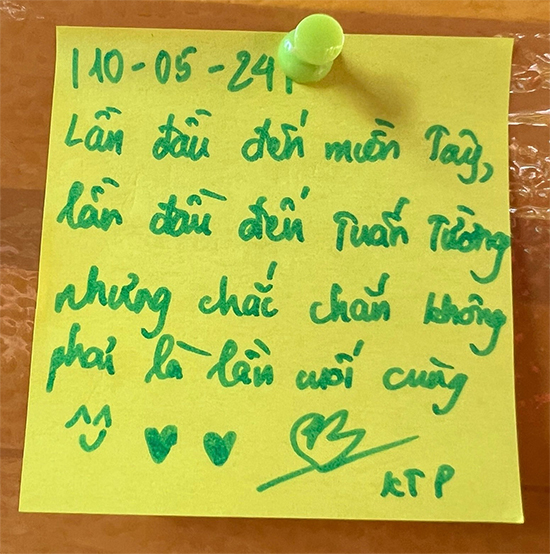 |10-05-24|
Lần đầu đến miền Tây,
lần đầu đến Tuấn Tường
nhưng chắc chắn không
phải là lần cuối cùng
^^ ♥ ♥
KTP